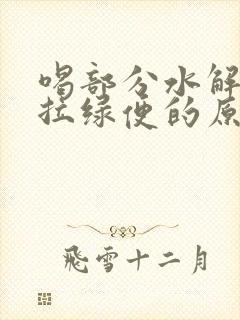 喝部分水解
拉绿便的原
飛雪十二月